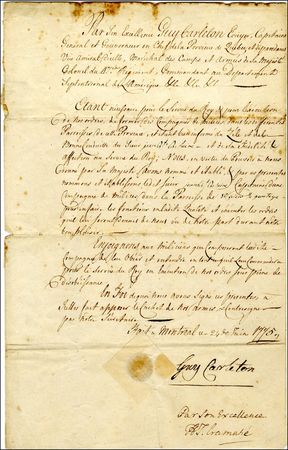 Par Son Excellence Guy Carleton Ecuyer, Capitaine
General et Gouverneur en Chef de la Province de Quebec et dépendances
Vice Amiral d'icelle, Maréchal des Camps et Armées de la Majesté
Colonel du Regiment, Commandant au Departement
Septentrional de l'Amérique &c. &c. &c.
Etant necessaire pour le Service du Roy, & pour l'execution
de nos ordres de former des Compagnies de Milices dans les différentes
Paroisses de cette Province et étant bien informé du Zele et de la
Bonne Conduite du Sieur et de sa Fidelité &
affection au Service du Roy, Nous, en vertu du Pouvoir à nous
donné par Sa Majesté l'avons nommé et établi & par ces présentes
nommons et établissons led. Sieur Capitaine d'une
Compagnie de milices dans la Paroisse de
pour en faire les fonctions en ladite qualité et executer les ordres
qui lui seront donnés de nous ou de notre part durant notre
bon plaisir.
Enjoignons aux Miliciens qui composeront ladite
Compagnie de lui Obeir et entendre en tout ce qu'il commandera
pour le Service du Roy en Execution de nos ordres sous peine de
Desobeissance.
En Foi de quoi Nous avons Signé ces présentes à
icelles fait apposer le Cachet de nos Armes & contresigner
par notre Secretaire.
Fait à Montreal le 24 de Juin 1775
Guy Carleton
Par Son Excellence
H. T. Cramahé